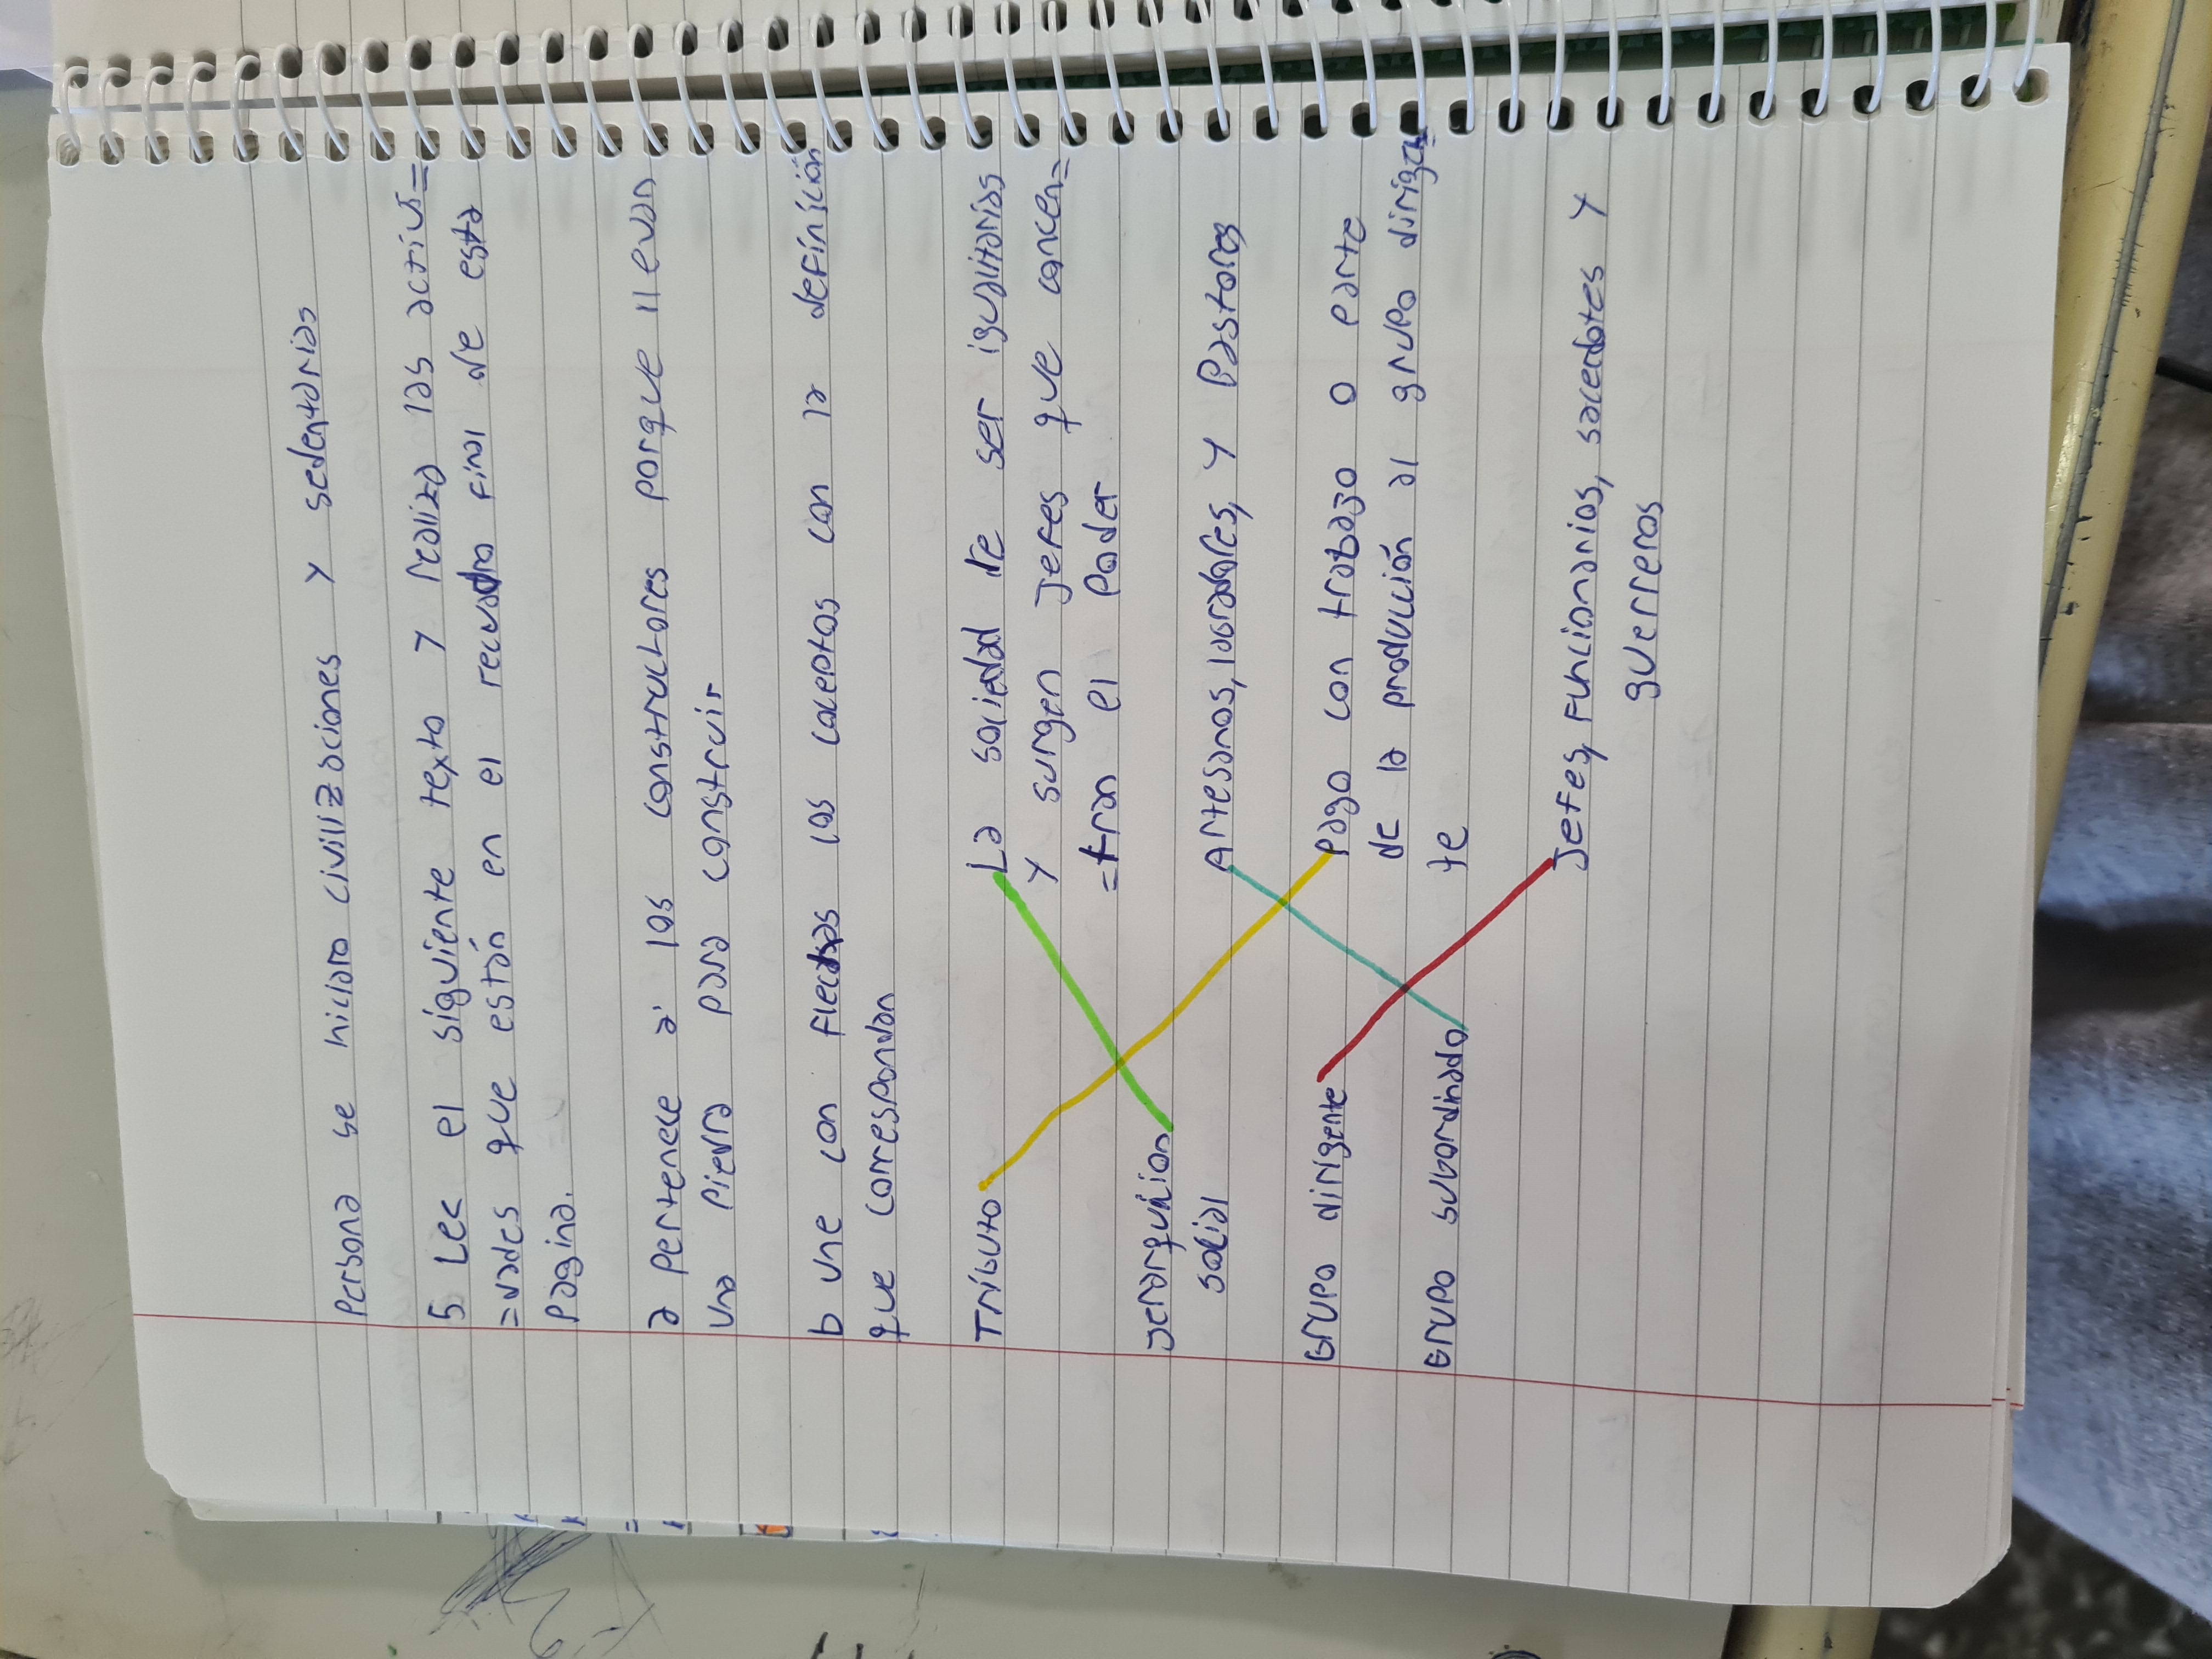 Persona se hiciaro civilizaciones y sedentarias
5 Lee el siguiente texto y realiza las activi=
=vades que están en el recuadro final de esta
Pagina.
a Pertenece a los constructores porque llevan
una Piedra para construir
b une con flechas los coceptos con la definición
que correspondan
Tributo
La sociedad de ser igualitarias
y surgen Jefes que concen=
=tran el Poder
Jerarquician
social
Artesanos, labradores, y Pastores
Grupo dirigente
Pago con trabazo o parte
de la producción al grupo dirigen
te
Grupo subordinado
Jefes, Funcionarios, sacerdotes y
guerreros